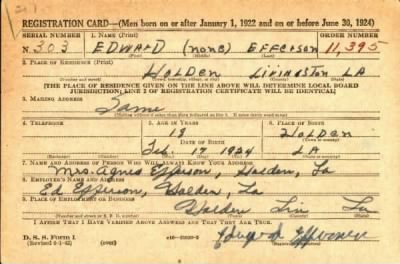 REGISTRATION CARD—(Men born on or after January 1, 1922 and on or before June 30, 1924)
SERIAL NUMBER 1. NAME (Print) ORDER NUMBER
N 303 EDWARD (none) EFFERSON 11,395
(First) (Middle) (Last)
2. PLACE OF RESIDENCE (Print)
HOLDEN LIVINGSTON LA
[THE PLACE OF RESIDENCE GIVEN ON THE LINE ABOVE WILL DETERMINE LOCAL BOARD
JURISDICTION; LINE 2 OF REGISTRATION CERTIFICATE WILL BE IDENTICAL]
3. MAILING ADDRESS
Same
4. TELEPHONE 5. AGE IN YEARS 6. PLACE OF BIRTH
18 Holden
DATE OF BIRTH
Feb. 17 1924 LA
7. NAME AND ADDRESS OF PERSON WHO WILL ALWAYS KNOW YOUR ADDRESS
Mrs. Agnes Efferson, Holden, La
8. EMPLOYER'S NAME AND ADDRESS
Ed Efferson, Holden, La
9. PLACE OF EMPLOYMENT OR BUSINESS
Holden Liv La
I AFFIRM THAT I HAVE VERIFIED ABOVE ANSWERS AND THAT THEY ARE TRUE.
D. S. S. Form 1 Edward Efferson
(Revised 6-1-42) (over)